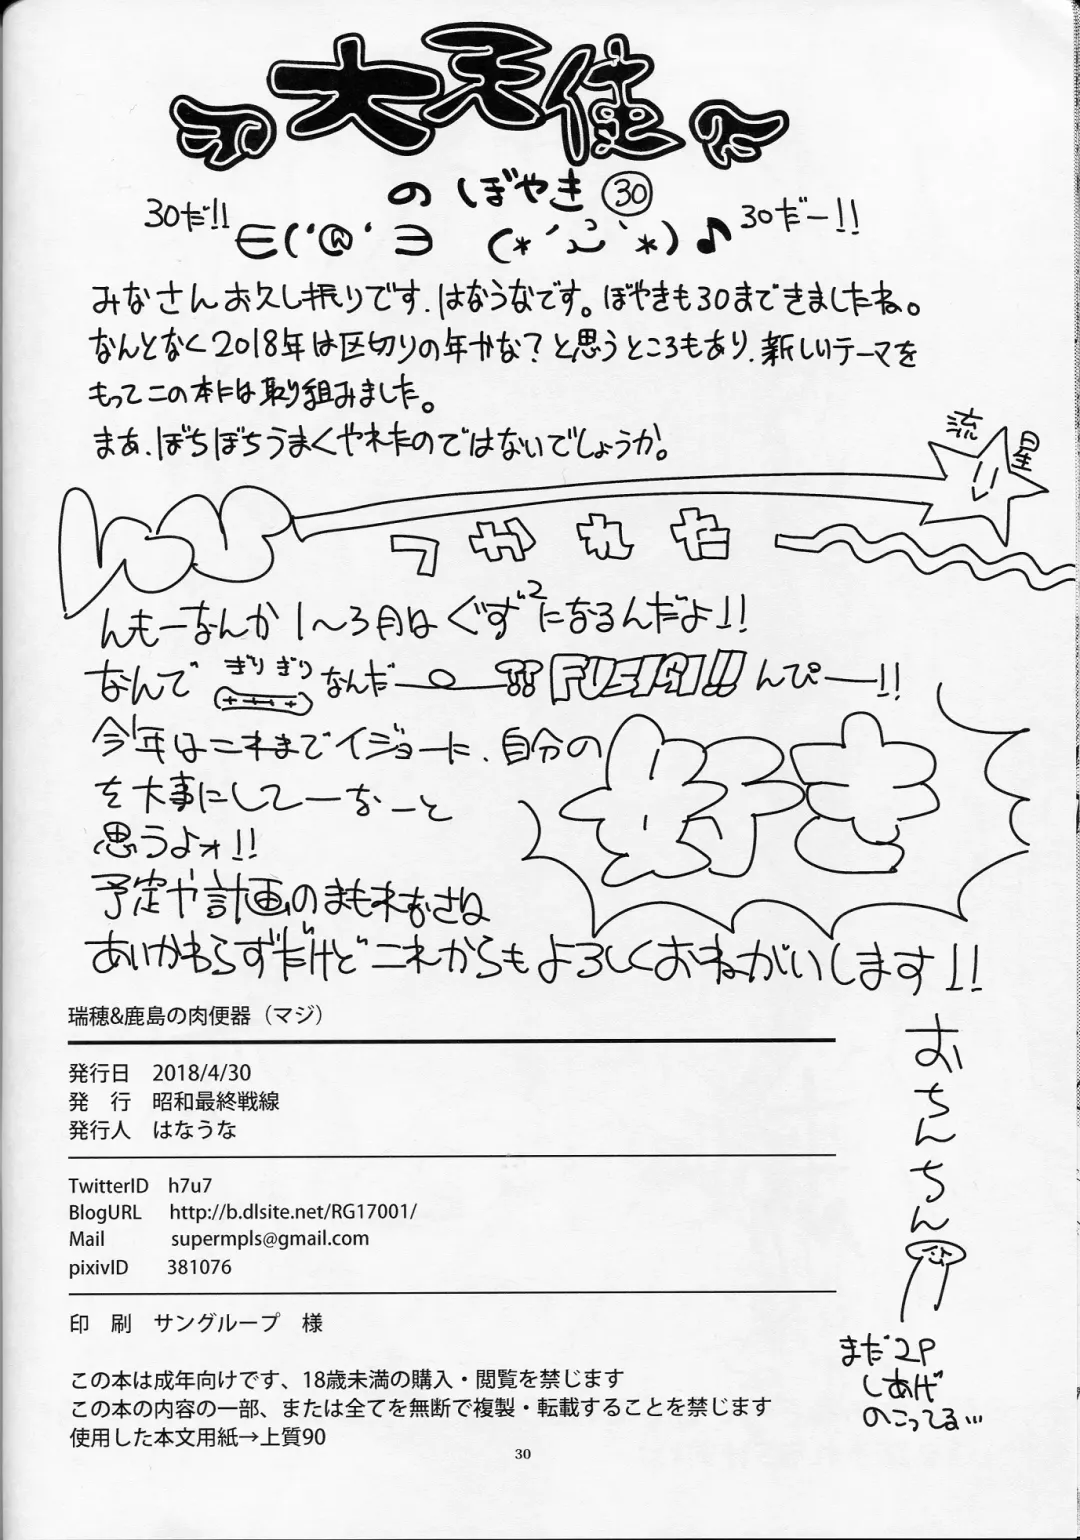 大天使
のぼやき㉚
30だ!!
30だー!!
みなさんお久し振りです.はなうなです。ぼやきも30まできましたね。
なんとなく2018年は区切りの年かな?と思うところもあり.新しいテーマを
もってこの本には取り組みました。
まあ.ぼちぼちうまくやれたのではないでしょうか。
流星
つかれた
んもーなんか1〜3月はぐず²になるんだよ!!
なんで ぎりぎり なんだー !! FUSION!! んぴー!!
今年はこれまでイジョーに.自分の
好き
を大事にしてーなーと
思うよォ!!
予定や計画のまもれなさは
あいかわらずだけどこれからもよろしくおねがいします!!
おちんちん
まだ2P
しあげ
のこってる…
瑞穂&鹿島の肉便器(マジ)
発行日 2018/4/30
発 行 昭和最終戦線
発行人 はなうな
TwitterID h7u7
BlogURL http://b.dlsite.net/RG17001/
Mail supermpls@gmail.com
pixivID 381076
印 刷 サングループ 様
この本は成年向けです、18歳未満の購入・閲覧を禁じます
この本の内容の一部、または全てを無断で複製・転載することを禁じます
使用した本文用紙→上質90
30